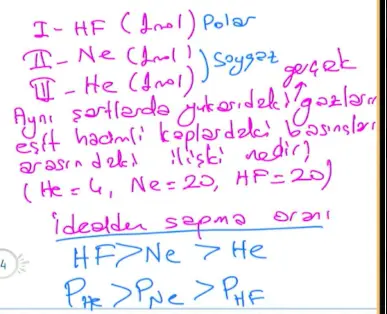 I- HF (1mol) Polar
II- Ne (1mol)
III- He (1mol) ) Soygaz
gerçek
Aynı şartlarda yukarıdaki gazların
eşit hacimli kaplardaki basınçları
arasındaki ilişki nedir)
(He = 4, Ne = 20, HF = 20)
idealden sapma oranı
HF > Ne > He
4
P_He > P_Ne > P_HF